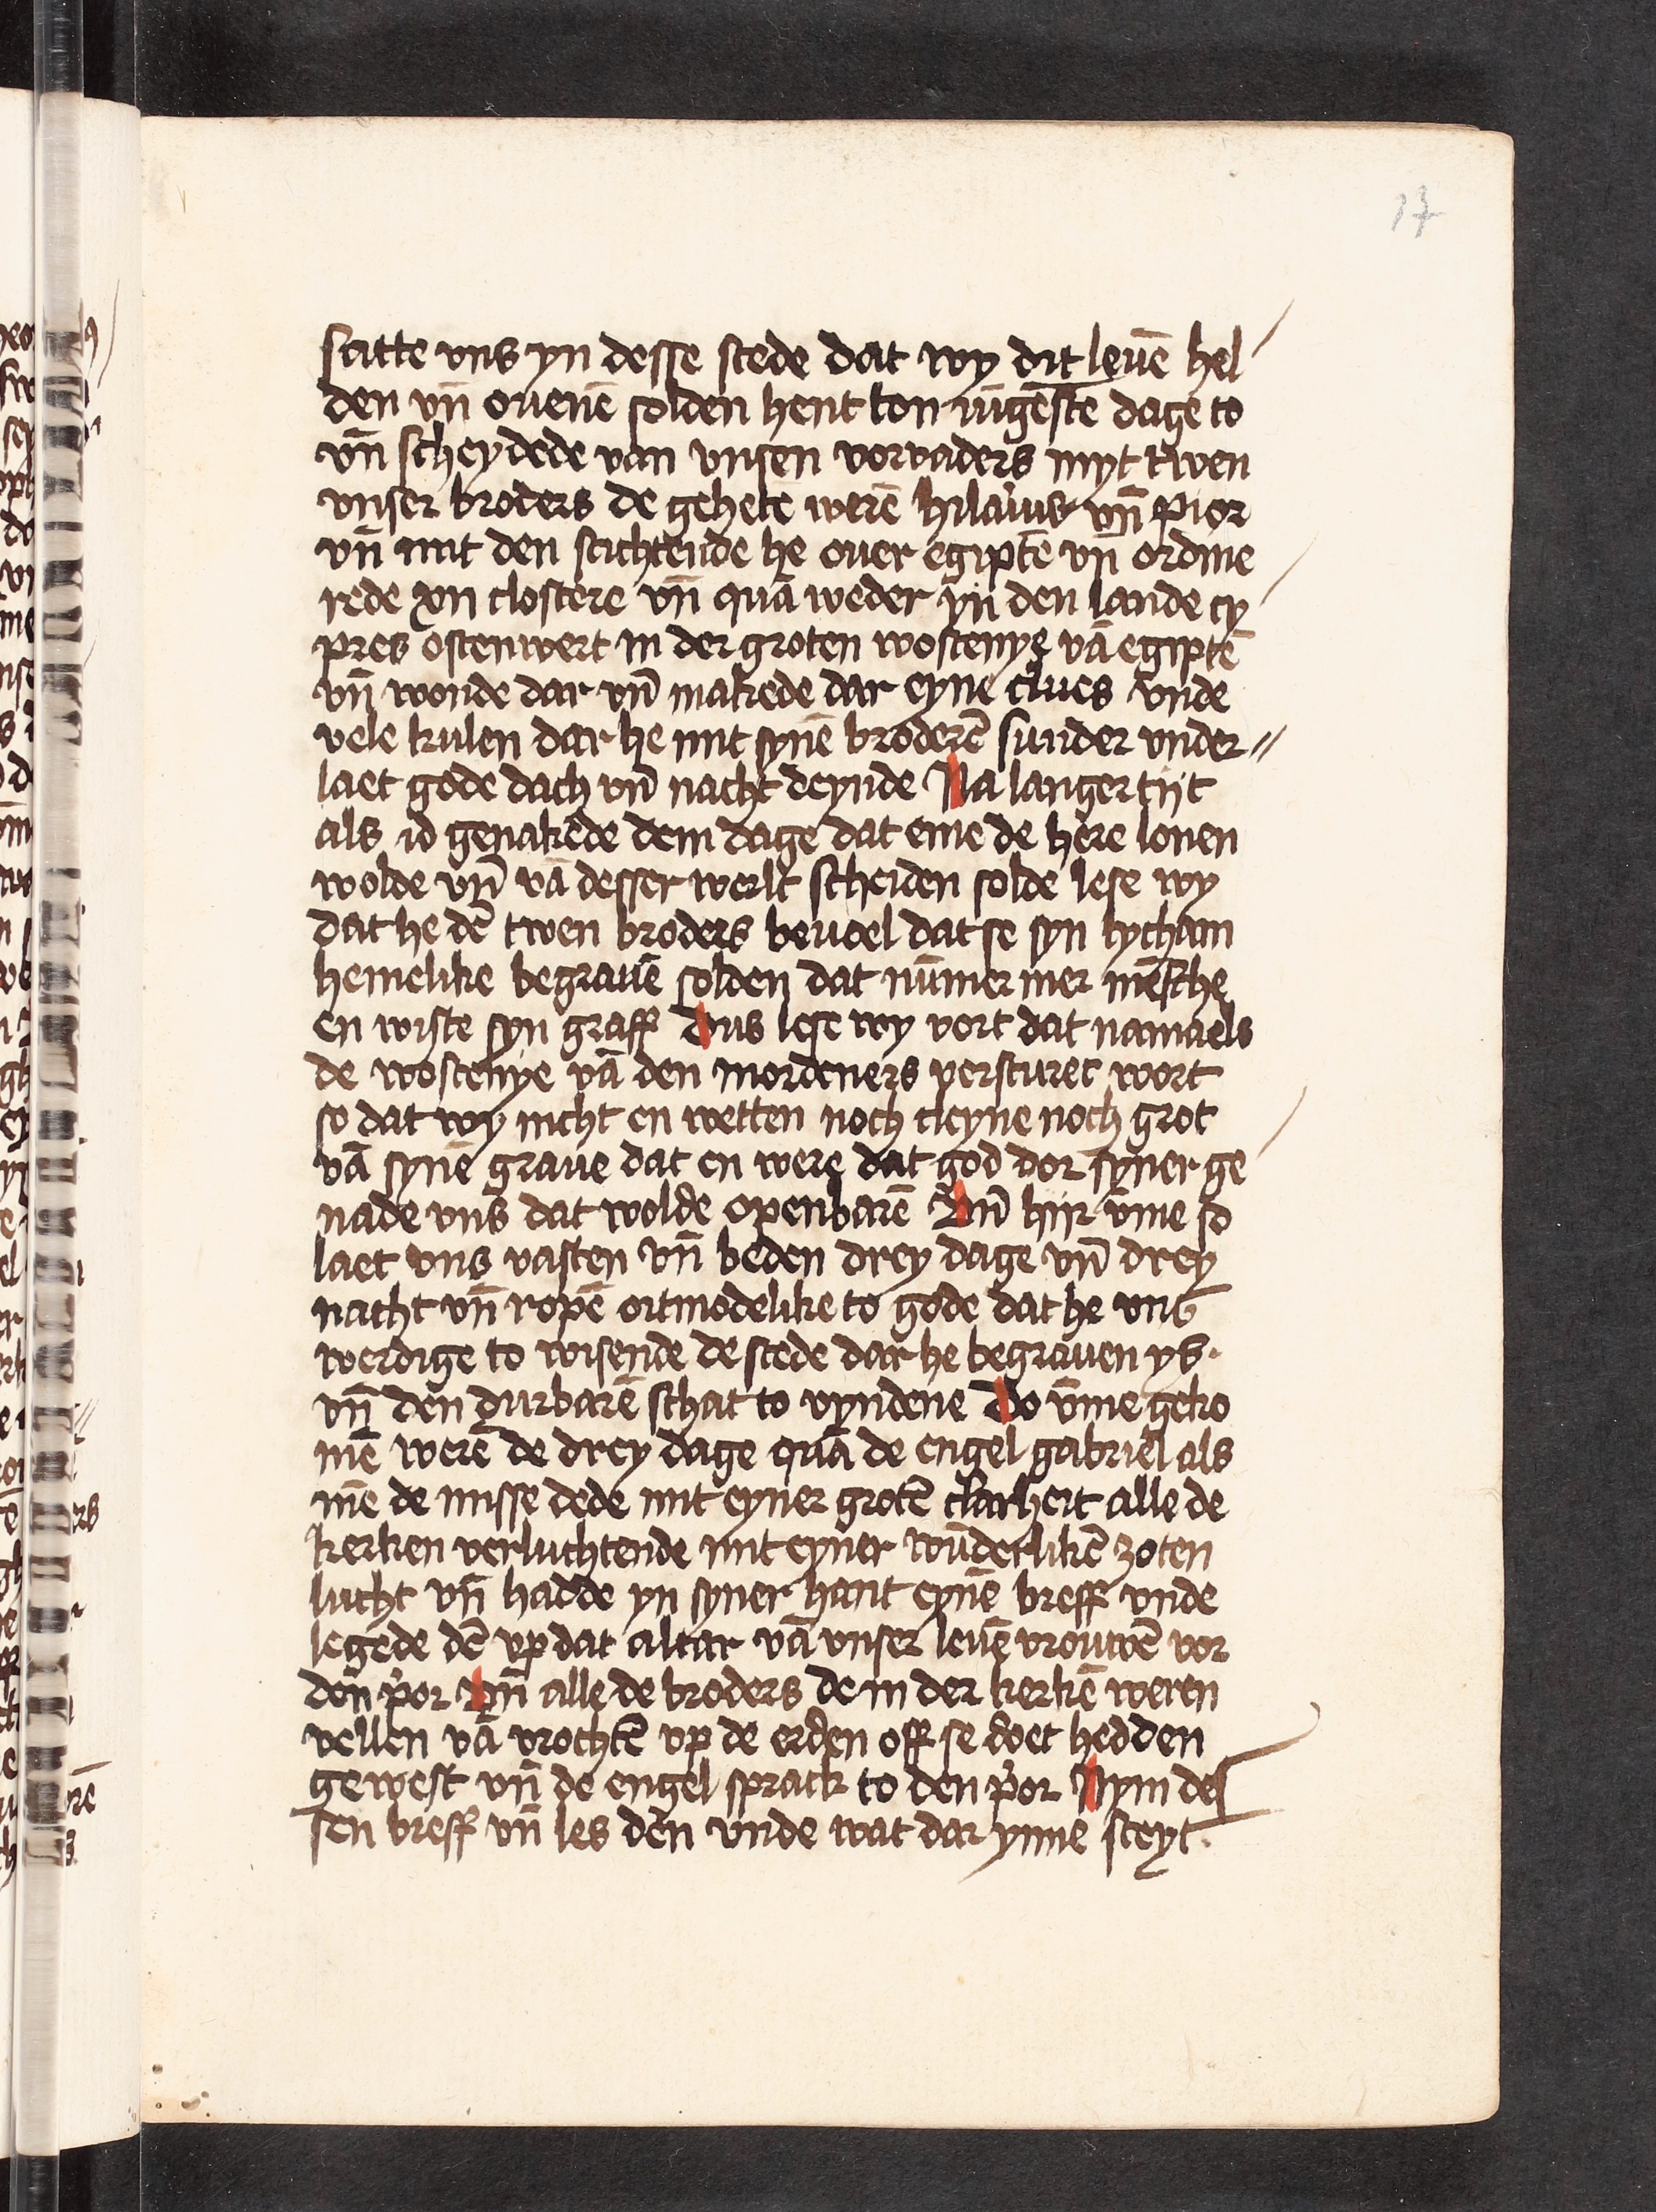 17
satte vns yn desse stede dat wy dit leuē hel/
den vn̄ ouenē solden hent ton iūgesten dage to
vn̄ scheydede van vnsen vorvaders myt twen
vnser broders de gehetē werē hilarius vn̄ pior
vn̄ mit den stichtende he ouer egiptē vn̄ ordine
rede xii clostere vn̄ quā weder yn den lande cy/
pres ostenwert in der groten wostenye vā egiptē
vn̄ wonde dar vn̄ makede dar eyne clues vnde
vele kulen dar he mit synē broderē sunder vnder//
laet gode dach vn̄ nacht deynde Na langer tijt
als id genakede dem dage dat eme de here lonen
wolde vn̄ vā desser werlt scheiden solde lese wy
dat he dē twen broders beuoel dat se syn lycham
hemelike begrauē solden dat nūmer mer mēsche
en wiste syn graff Dus lese wy vort dat namaels
de wostenye vā den mordeners versturet wort
so dat wy nicht en wetten noch cleyne noch grot
vā synē graue dat en were dat god dor syner ge/
nade vns dat wolde openbarē Vn̄ hijr v̄me so
laet vns vasten vn̄ beden drey dage vn̄ drey
nacht vn̄ ropē oitmodelike to gode dat he vns
werdige to wisende de stede dar he begrauen ys.
vn̄ den durbarē schat to vyndene Do v̄me geko
mē werē de drey dage quā de engel gabriel als
mē de misse dede mit eyner grotē clarheit alle de
kerken verluchtende mit eyner wūderlikē zoten
lucht vn̄ hadde yn syner hant eynē breff vnde
legede dē vp dat altar vā vnser leuē vrouwē vor
den p̄or Vn̄ alle de broders de in der kerkē weren
vellen vā vrochtē vp de erden off se doet hedden
gewest vn̄ de engel sprack to den p̄or Nym des
sen breff vn̄ les den vnde wat dar ynne steyt.